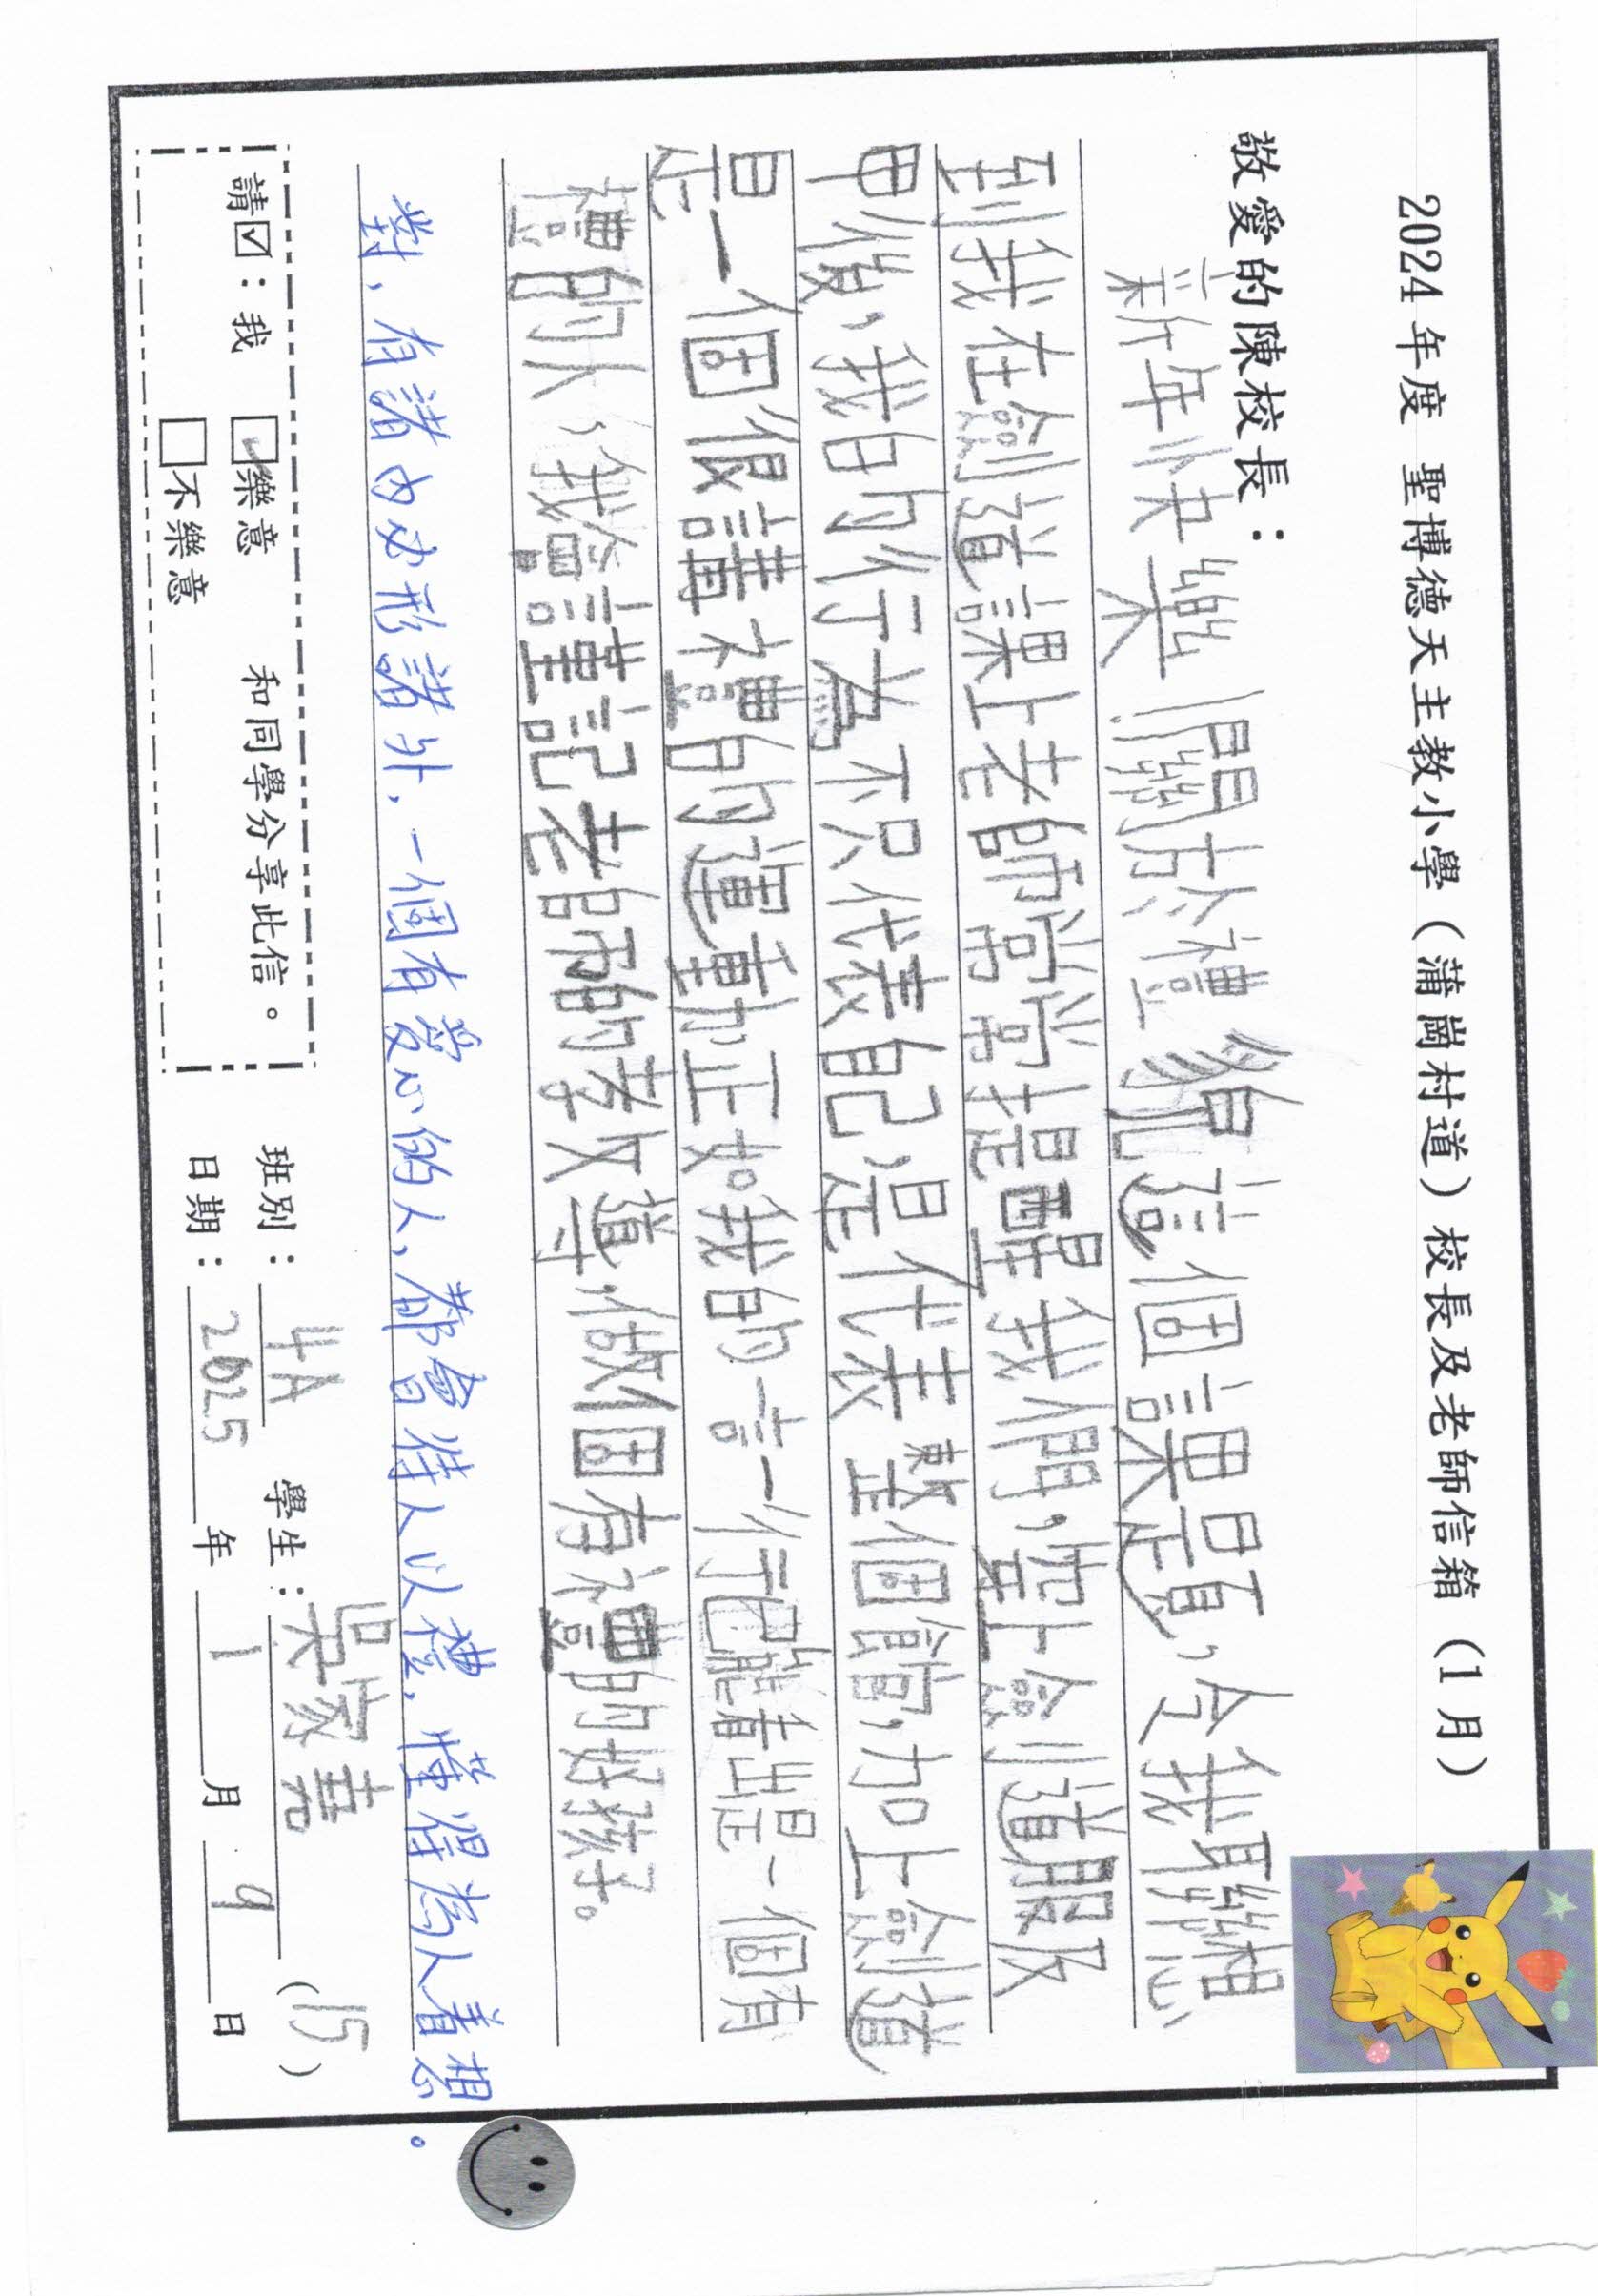 2024 年度 聖博德天主教小學（蒲崗村道）校長及老師信箱（1 月）
敬愛的陳校長：
新年快樂！關於禮貌這個課題，令我聯想
到我在劍道課上老師常常提醒我們，空上劍道服
甲後，我的行為不只代表自己，是代表整個館，加上劍道
是一個很講禮的運動，正如我的言一行已能看出是一個有
禮的人，我會謹記老師的孝敬導，做個有禮的好孩子。
對，有諸內必形諸外，一個有愛心的人，都會待人以禮，懂得為人着想。
請☑：我 ☑樂意 和同學分享此信。
□不樂意
班別：4A 學生：吳家嘉 (15)
日期：2025 年 1 月 9 日